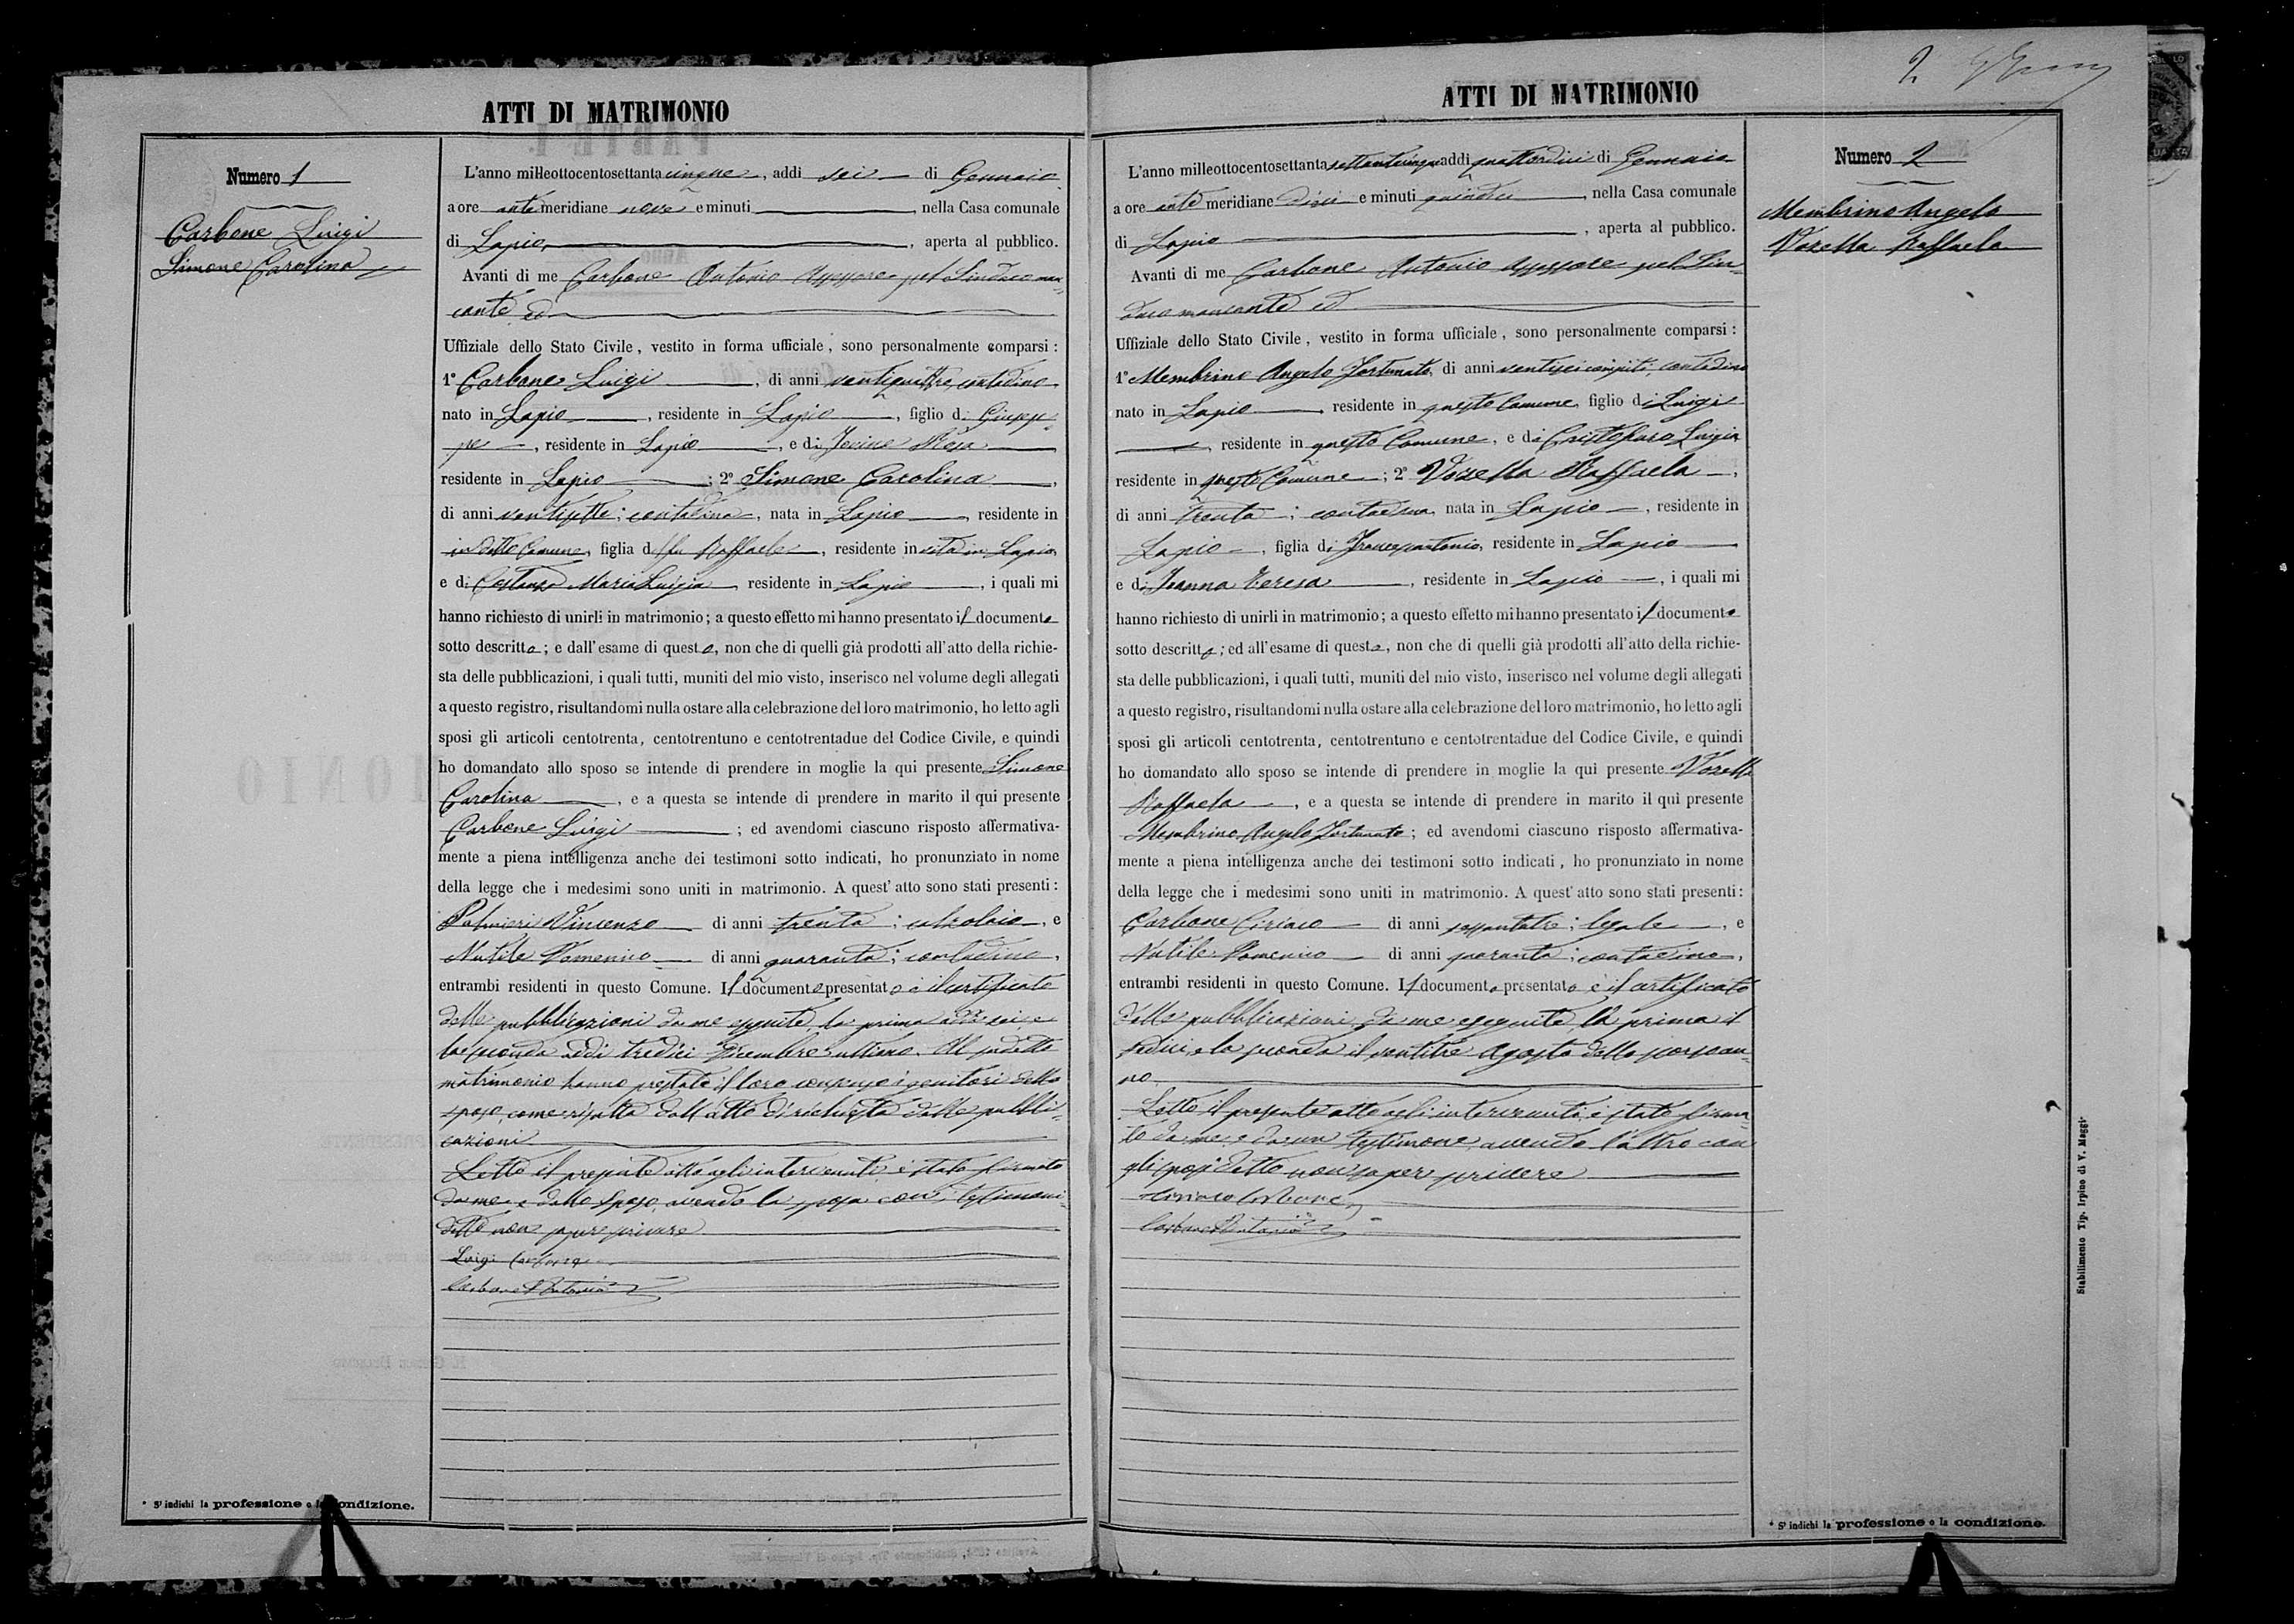 ATTI DI MATRIMONIO
Numero 1
Carbone Luigi
Simone Carolina
L'anno milleottocentosettantacinque, addì sei di Gennaio
a ore antemeridiane nove e minuti , nella Casa comunale
di Lapio , aperta al pubblico.
Avanti di me Carbone Antonio Assessore pel Sindaco man-
cante ed
Uffiziale dello Stato Civile, vestito in forma ufficiale, sono personalmente comparsi :
1° Carbone Luigi , di anni , contadino
nato in Lapio , residente in Lapio , figlio di Giusep-
pe , residente in Lapio , e di Rosa
residente in Lapio ; 2° Simone Carolina ,
di anni ventisette ; contadina , nata in Lapio residente in
in detto Comune, figlia di fu Raffaele , residente in vita in Lapio
e di Costanza Maria Luigia residente in Lapio , i quali mi
hanno richiesto di unirli in matrimonio ; a questo effetto mi hanno presentato il documento
sotto descritto ; e dall'esame di questo, non che di quelli già prodotti all'atto della richie-
sta delle pubblicazioni, i quali tutti, muniti del mio visto, inserisco nel volume degli allegati
a questo registro, risultandomi nulla ostare alla celebrazione del loro matrimonio, ho letto agli
sposi gli articoli centotrenta, centotrentuno e centotrentadue del Codice Civile, e quindi
ho domandato allo sposo se intende di prendere in moglie la qui presente Simone
Carolina , e a questa se intende di prendere in marito il qui presente
Carbone Luigi ; ed avendomi ciascuno risposto affermativa-
mente a piena intelligenza anche dei testimoni sotto indicati, ho pronunziato in nome
della legge che i medesimi sono uniti in matrimonio. A quest'atto sono stati presenti :
Palmieri Vincenzo di anni trenta ; calzolaio , e
Nutile Domenico di anni quaranta ; contadino ,
entrambi residenti in questo Comune. Il documento presentato è il certificato
delle pubblicazioni da me eseguite, la prima addì sei, e
la seconda addì tredici Dicembre ultimo. Al sudetto
matrimonio hanno prestato il loro consenso i genitori dello
sposo, come risulta dall'atto di richiesta delle pubbli-
cazioni
Letto il presente atto agli intervenuti è stato firmato
da me e dallo sposo, avendo la sposa con i testimoni
detto non sapere scrivere
Luigi Carbone
Carbone Antonio
* Si indichi la professione o la condizione.
2
ATTI DI MATRIMONIO
Numero 2
Membrino Angelo
Vozella Raffaela
L'anno milleottocentosettantasettantacinque addì quattordici di Gennaio
a ore antemeridiane dieci e minuti quindici , nella Casa comunale
di Lapio , aperta al pubblico.
Avanti di me Carbone Antonio Assessore pel Sin-
daco mancante ed
Uffiziale dello Stato Civile, vestito in forma ufficiale, sono personalmente comparsi :
1° Membrino Angelo Fortunato, di anni ventisei compiti, contadino
nato in Lapio , residente in questo Comune, figlio di Luigi
, residente in questo Comune, e di Cristofaro Luigia
residente in questo Comune ; 2° Vozella Raffaela ,
di anni trenta ; contadina, nata in Lapio , residente in
Lapio , figlia di Francescantonio, residente in Lapio
e di Ioanna Teresa , residente in Lapio , i quali mi
hanno richiesto di unirli in matrimonio ; a questo effetto mi hanno presentato il documento
sotto descritto ; ed all'esame di questo, non che di quelli già prodotti all'atto della richie-
sta delle pubblicazioni, i quali tutti, muniti del mio visto, inserisco nel volume degli allegati
a questo registro, risultandomi nulla ostare alla celebrazione del loro matrimonio, ho letto agli
sposi gli articoli centotrenta, centotrentuno e centotrentadue del Codice Civile, e quindi
ho domandato allo sposo se intende di prendere in moglie la qui presente Vozella
Raffaela , e a questa se intende di prendere in marito il qui presente
Membrino Angelo Fortunato ; ed avendomi ciascuno risposto affermativa-
mente a piena intelligenza anche dei testimoni sotto indicati, ho pronunziato in nome
della legge che i medesimi sono uniti in matrimonio. A quest'atto sono stati presenti :
Carbone Ciriaco di anni sessantatre ; legale , e
Nutile Domenico di anni quaranta ; contadino ,
entrambi residenti in questo Comune. Il documento presentato è il certificato
delle pubblicazioni da me eseguite, la prima il
sedici, e la seconda il ventitre Agosto dello scorso an-
no
Letto il presente atto agli intervenuti, è stato firma
to da me e da un testimone, avendo l'altro con
gli sposi detto non saper scrivere
Ciriaco Carbone
Carbone Antonio
* Si indichi la professione o la condizione.
Stabilimento Tip. Irpino di V. Maggi